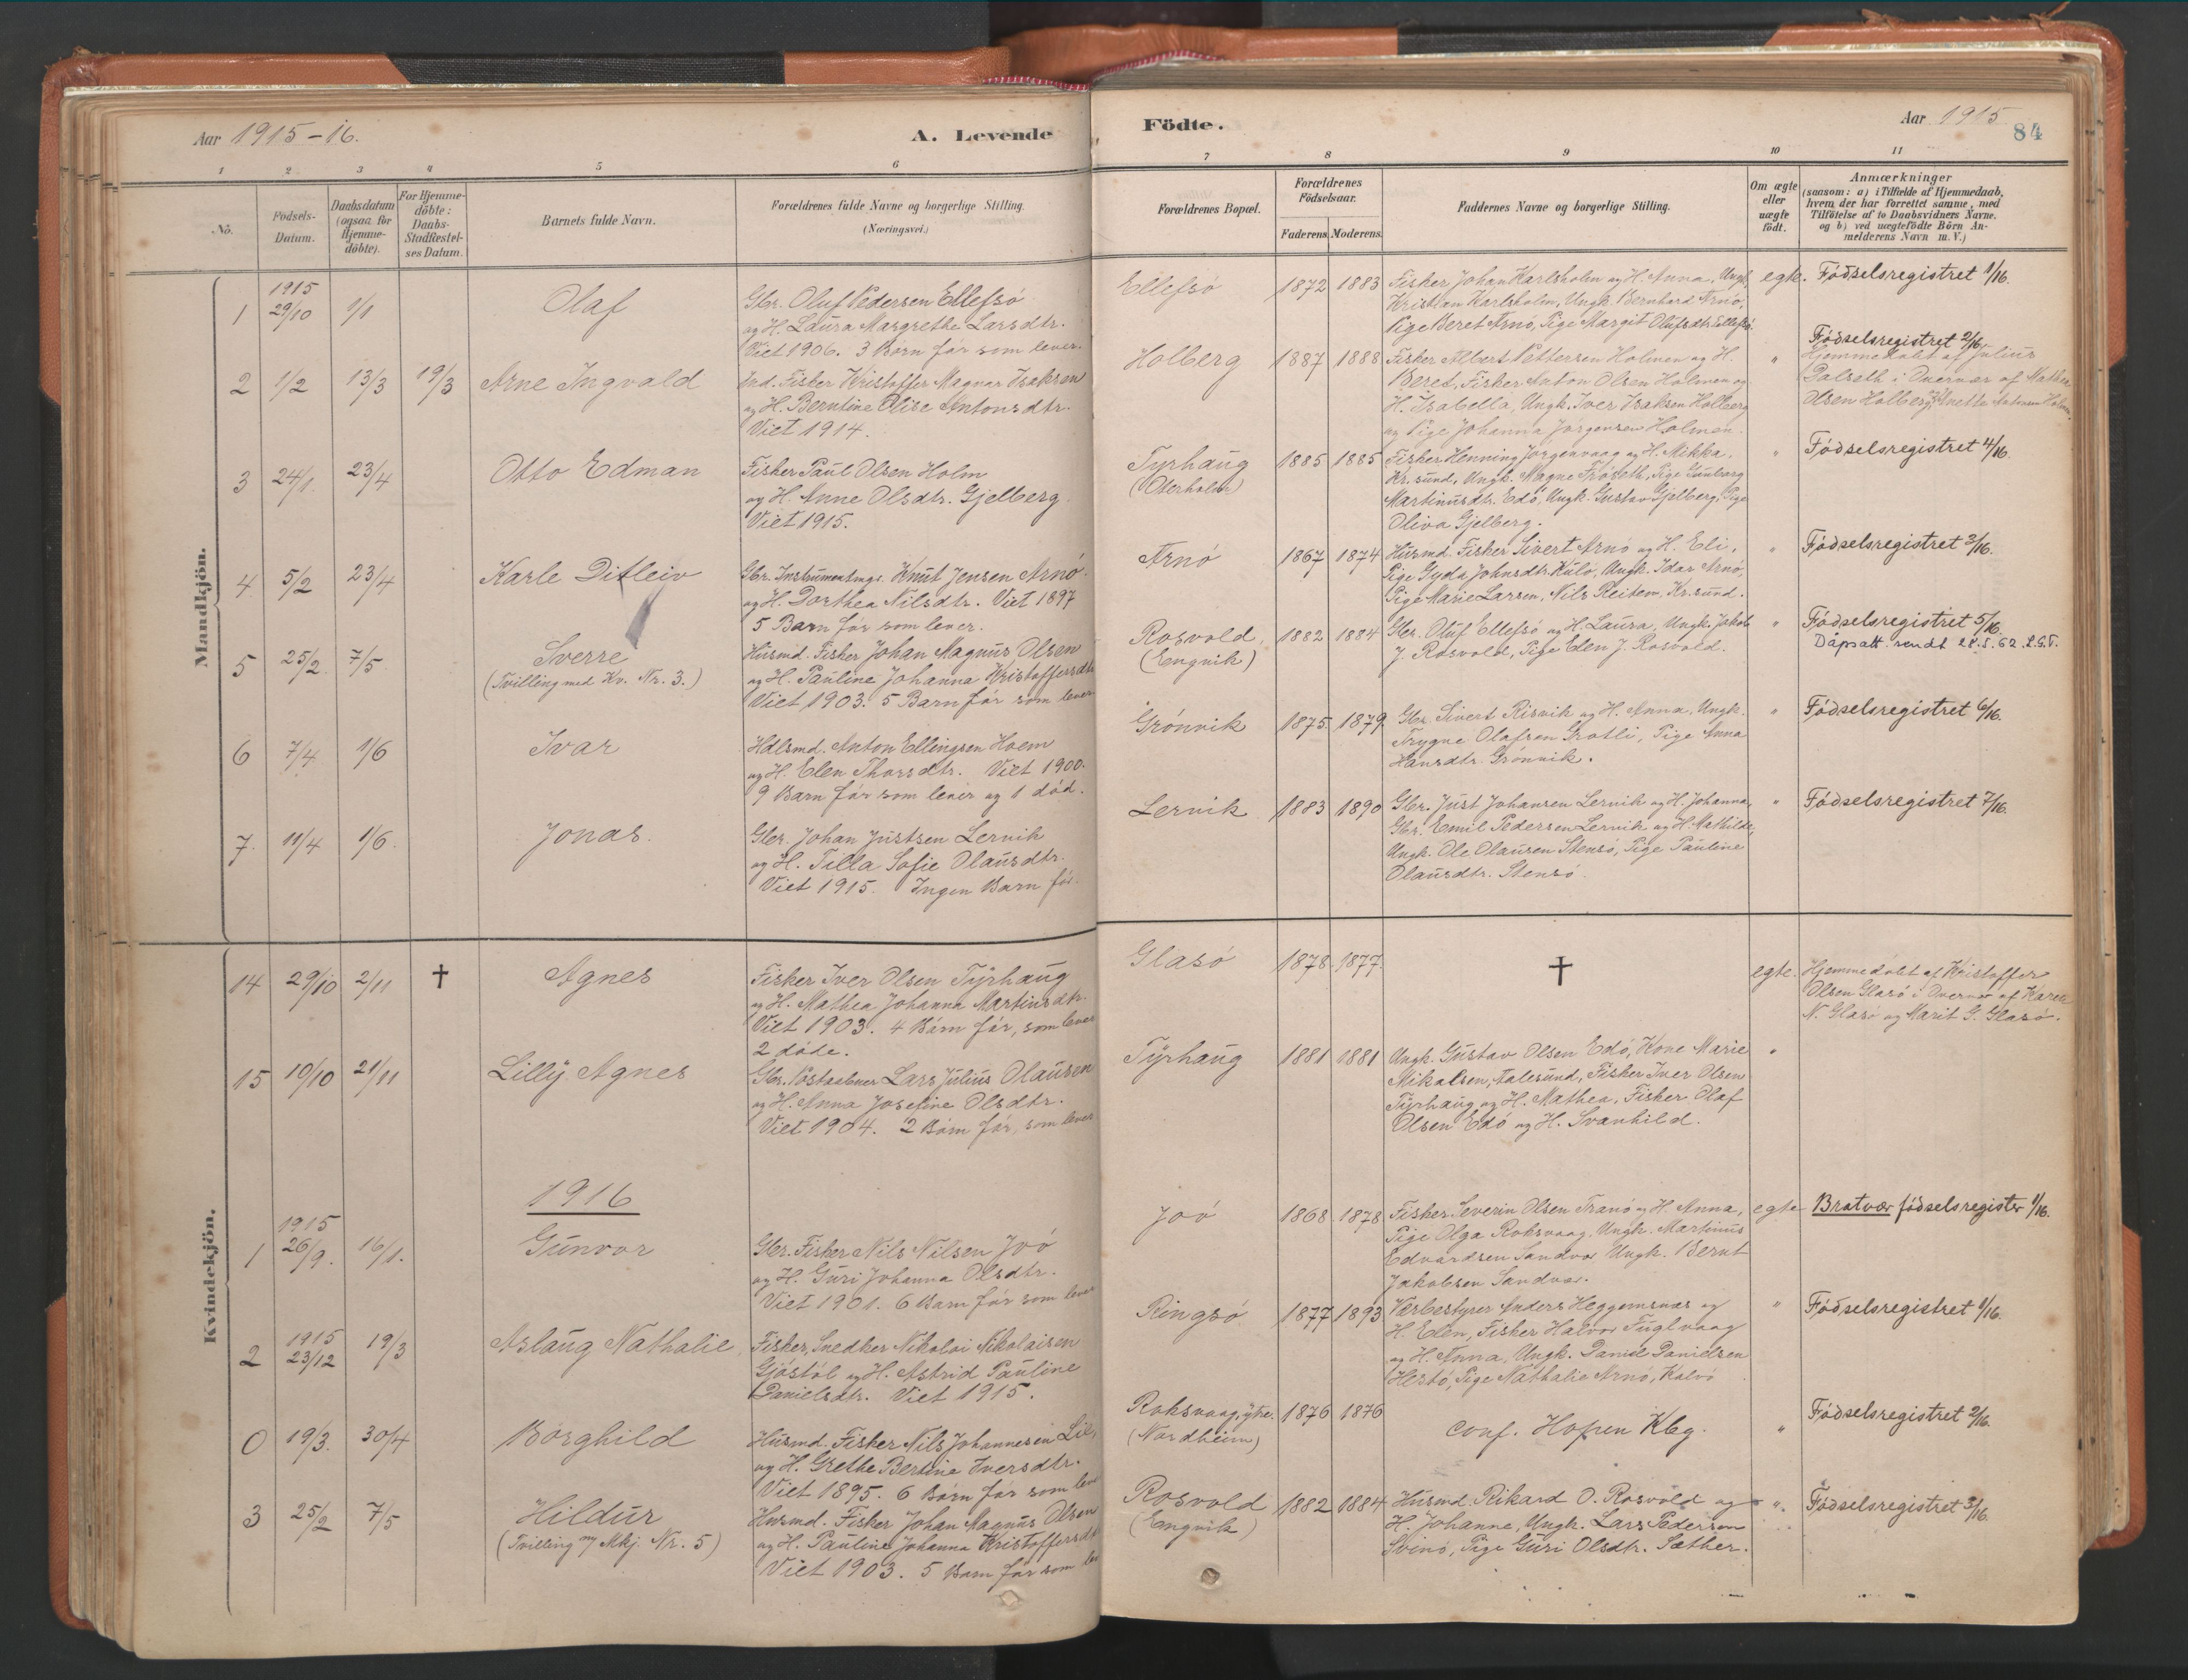 Aar 1915-16.
A. Levende
1 2 3 4 5 6
No.
Födsels-
Datum.
Daabsdatum
(ogsaa for
Hjemme-
döbte).
For Hjemme-
döbte:
Daabs-
Stadfæstel-
ses Datum.
Barnets fulde Navn.
Forældrenes fulde Navne og borgerlige Stilling.
(Næringsvei.)
Mandkjön.
1 1915 29/10 1/1 Olaf
Gbr. Oluf Pedersen Ellefsö
og H. Laura Margrethe Larsdtr.
Viet 1906. 3 Börn för som lever.
2 1/2 13/3 19/3 Arne Ingvald
Ind. Fisker Kristoffer Magnar Isaksen
og H. Berntine Olise Antonsdtr.
Viet 1914.
3 24/1 23/4 Otto Edman
Fisker Paul Olsen Holm
og H. Anne Olsdtr. Gjelberg.
Viet 1915.
4 5/2 23/4 Karle Ditleiv
Gbr. Instrumentmgr. Knut Jensen Arnö
og H. Dorthea Nilsdtr. Viet 1897
5 Barn för som lever.
5 25/2 7/5 Sverre
(Tvilling med Kv. Nr. 3.)
Husmd. Fisker Johan Magnus Olsen
og H. Pauline Johanna Kristoffersdtr
Viet 1903. 5 Barn för som lever
6 7/4 1/6 Ivar
Hdlsmd. Anton Ellingsen Hoem
og H. Elen Thorsdtr. Viet 1900.
9 Barn för som lever og 1 död.
7. 11/4 1/6. Jonas.
Gbr. Johan Justsen Lervik
og H. Tilla Sofie Olausdtr.
Viet 1915. Ingen Barn för.
Kvindekjön.
14 29/10 2/11 † Agnes
Fisker Iver Olsen Tyrhaug
og H. Mathea Johanna Martinsdtr.
Viet 1903. 4 Börn för, som lever
2 döde.
15 10/10 21/11 Lilly Agnes
Gbr. Postaabner Lars Julius Olausen
og H. Anna Josefine Olsdtr.
Viet 1904. 2 Börn för, som lever
1916
1 1915 26/9. 16/1. Gunvor
Gbr. Fisker Nils Nilsen Joö
og H. Guri Johanna Olsdtr.
Viet 1901. 6 Barn för som lever
2 1915 23/12 19/3 Aslaug Nathalie
Fisker, Snedker Nikolai Nikolaisen
Gjöstöl og H. Astrid Pauline
Danielsdtr. Viet 1915.
0 19/3. 30/4 Borghild
Husmd. Fisker Nils Johannesen Lil,
og H. Grethe Bertine Iversdtr.
Viet 1895. 6 Börn för som leve
3 25/2 7/5 Hildur
(Tvilling m/ Mkj. Nr. 5)
Husmd. Fisker Johan Magnus Olsen
og H. Pauline Johanna Kristoffersdt
Viet 1903. 5 Barn för som lev
Födte.
Aar 1915
84
7 8 9 10 11
Forældrenes Bopæl.
Forældrenes
Födselsaar.
Faderens. Moderens.
Faddernes Navne og borgerlige Stilling.
Om ægte
eller
uægte
födt.
Anmærkninger
(saasom: a) i Tilfælde af Hjemmedaab,
hvem der har forrettet samme, med
Tilföielse af to Daabsvidners Navne.
og b) ved uægtefödte Börn An-
melderens Navn m. V.)
Ellefsö 1872 1883
Fisker Johan Karlsholm og H. Anna, Ungk.
Kristian Karlsholm, Ungk. Bernhard Arnö,
Pige Beret Arnö, Pige Margit Olufsdtr. Ellefsö.
egte. Födselsregistret 1/16.
Holberg 1887 1888
Fisker Albert Pettersen Holmen og H.
Beret, Fisker Anton Olsen Holmen og
H. Isabella, Ungk. Iver Isaksen Holberg
og Pige Johanna Jörgensen Holmen.
" Födselsregistret 2/16.
Hjemmedöbt af Julius
Dalseth i Overvær af Mathea
Olsen Holberg, Anette Antonsen Holmen.
Tyrhaug
(Oterholm)
1885 1885
Fisker Henning Jörgenvaag og H. Mikka,
Kr. sund, Ungk. Magne Fröseth, Pige Gunborg
Martinusdtr. Edö, Ungk. Gustav Gjelberg, Pige
Oliva Gjelberg.
" Födselsregistret 4/16.
Arnö 1867 1874
Husmd. Fisker Sivert Arnö og H. Eli,
Pige Gyda Johnsdtr. Kulö, Ungk. Idar Arnö,
Pige Marie Larsen, Nils Reiten, Kr. sund.
" Födselsregistret 3/16.
Rosvold,
(Engvik)
1882 1884
Gbr. Oluf Ellefsö og H. Laura, Ungk. Jakob
J. Rosvold, Pige Elen J. Rosvold.
" Födselsregistret 5/16.
Dåpsatt. sendt 28.5.62. L.G.T.
Grönvik 1875. 1879.
Gbr. Sivert Risvik og H. Anna, Ungk.
Trygve Olafsen Grotli, Pige Anna
Hansdtr. Grönvik.
" Födselsregistret 6/16.
Lervik 1883 1890
Gbr. Just Johansen Lervik og H. Johanna,
Gbr. Emil Pedersen Lervik og H. Mathilde,
Ungk. Ole Olausen Stensö, Pige Pauline
Olausdtr. Stensö.
" Födselsregistret 7/16.
Glasö 1878 1877. †
egte. Hjemmedöbt af Kristoffer
Olsen Glasö i Overvær af Karen
N. Glasö og Marit G. Glasö.
Tyrhaug 1881 1881
Ungk. Gustav Olsen Edö, Kone Marie
Mikalsen, Aalesund, Fisker Iver Olsen
Tyrhaug og H. Mathea, Fisker Olaf
Olsen Edö og H. Svanhild.
"
Joö 1868. 1878
Fisker Severin Olsen Tranö og H. Anna,
Pige Olga Roksvaag, Ungk. Martinus
Edvardsen Sandvær Ungk. Bernt
Jakobsen Sandvær.
egte Bratvær födselsregister 1/16.
Ringsö. 1877 1893
Værbestyrer Anders Heggemsnæs og
H. Elen, Fisker Halvor Fuglvaag
og H. Anna, Ungk. Daniel Danielsen
Hestö, Pige Nathalie Arnö, Kalvö
" Födselsregistret 1/16.
Roksvaag, ytre.
(Nordheim)
1876 1876
conf. Hopen Kbg.
" Födselsregistret 2/16.
Rosvold
(Engvik)
1882 1884
Husmd. Rikard O. Rosvold og
H. Johanne, Ungk. Lars Pedersen
Svinö, Pige Guri Olsdtr. Sæther.
" Födselsregistret 3/16.